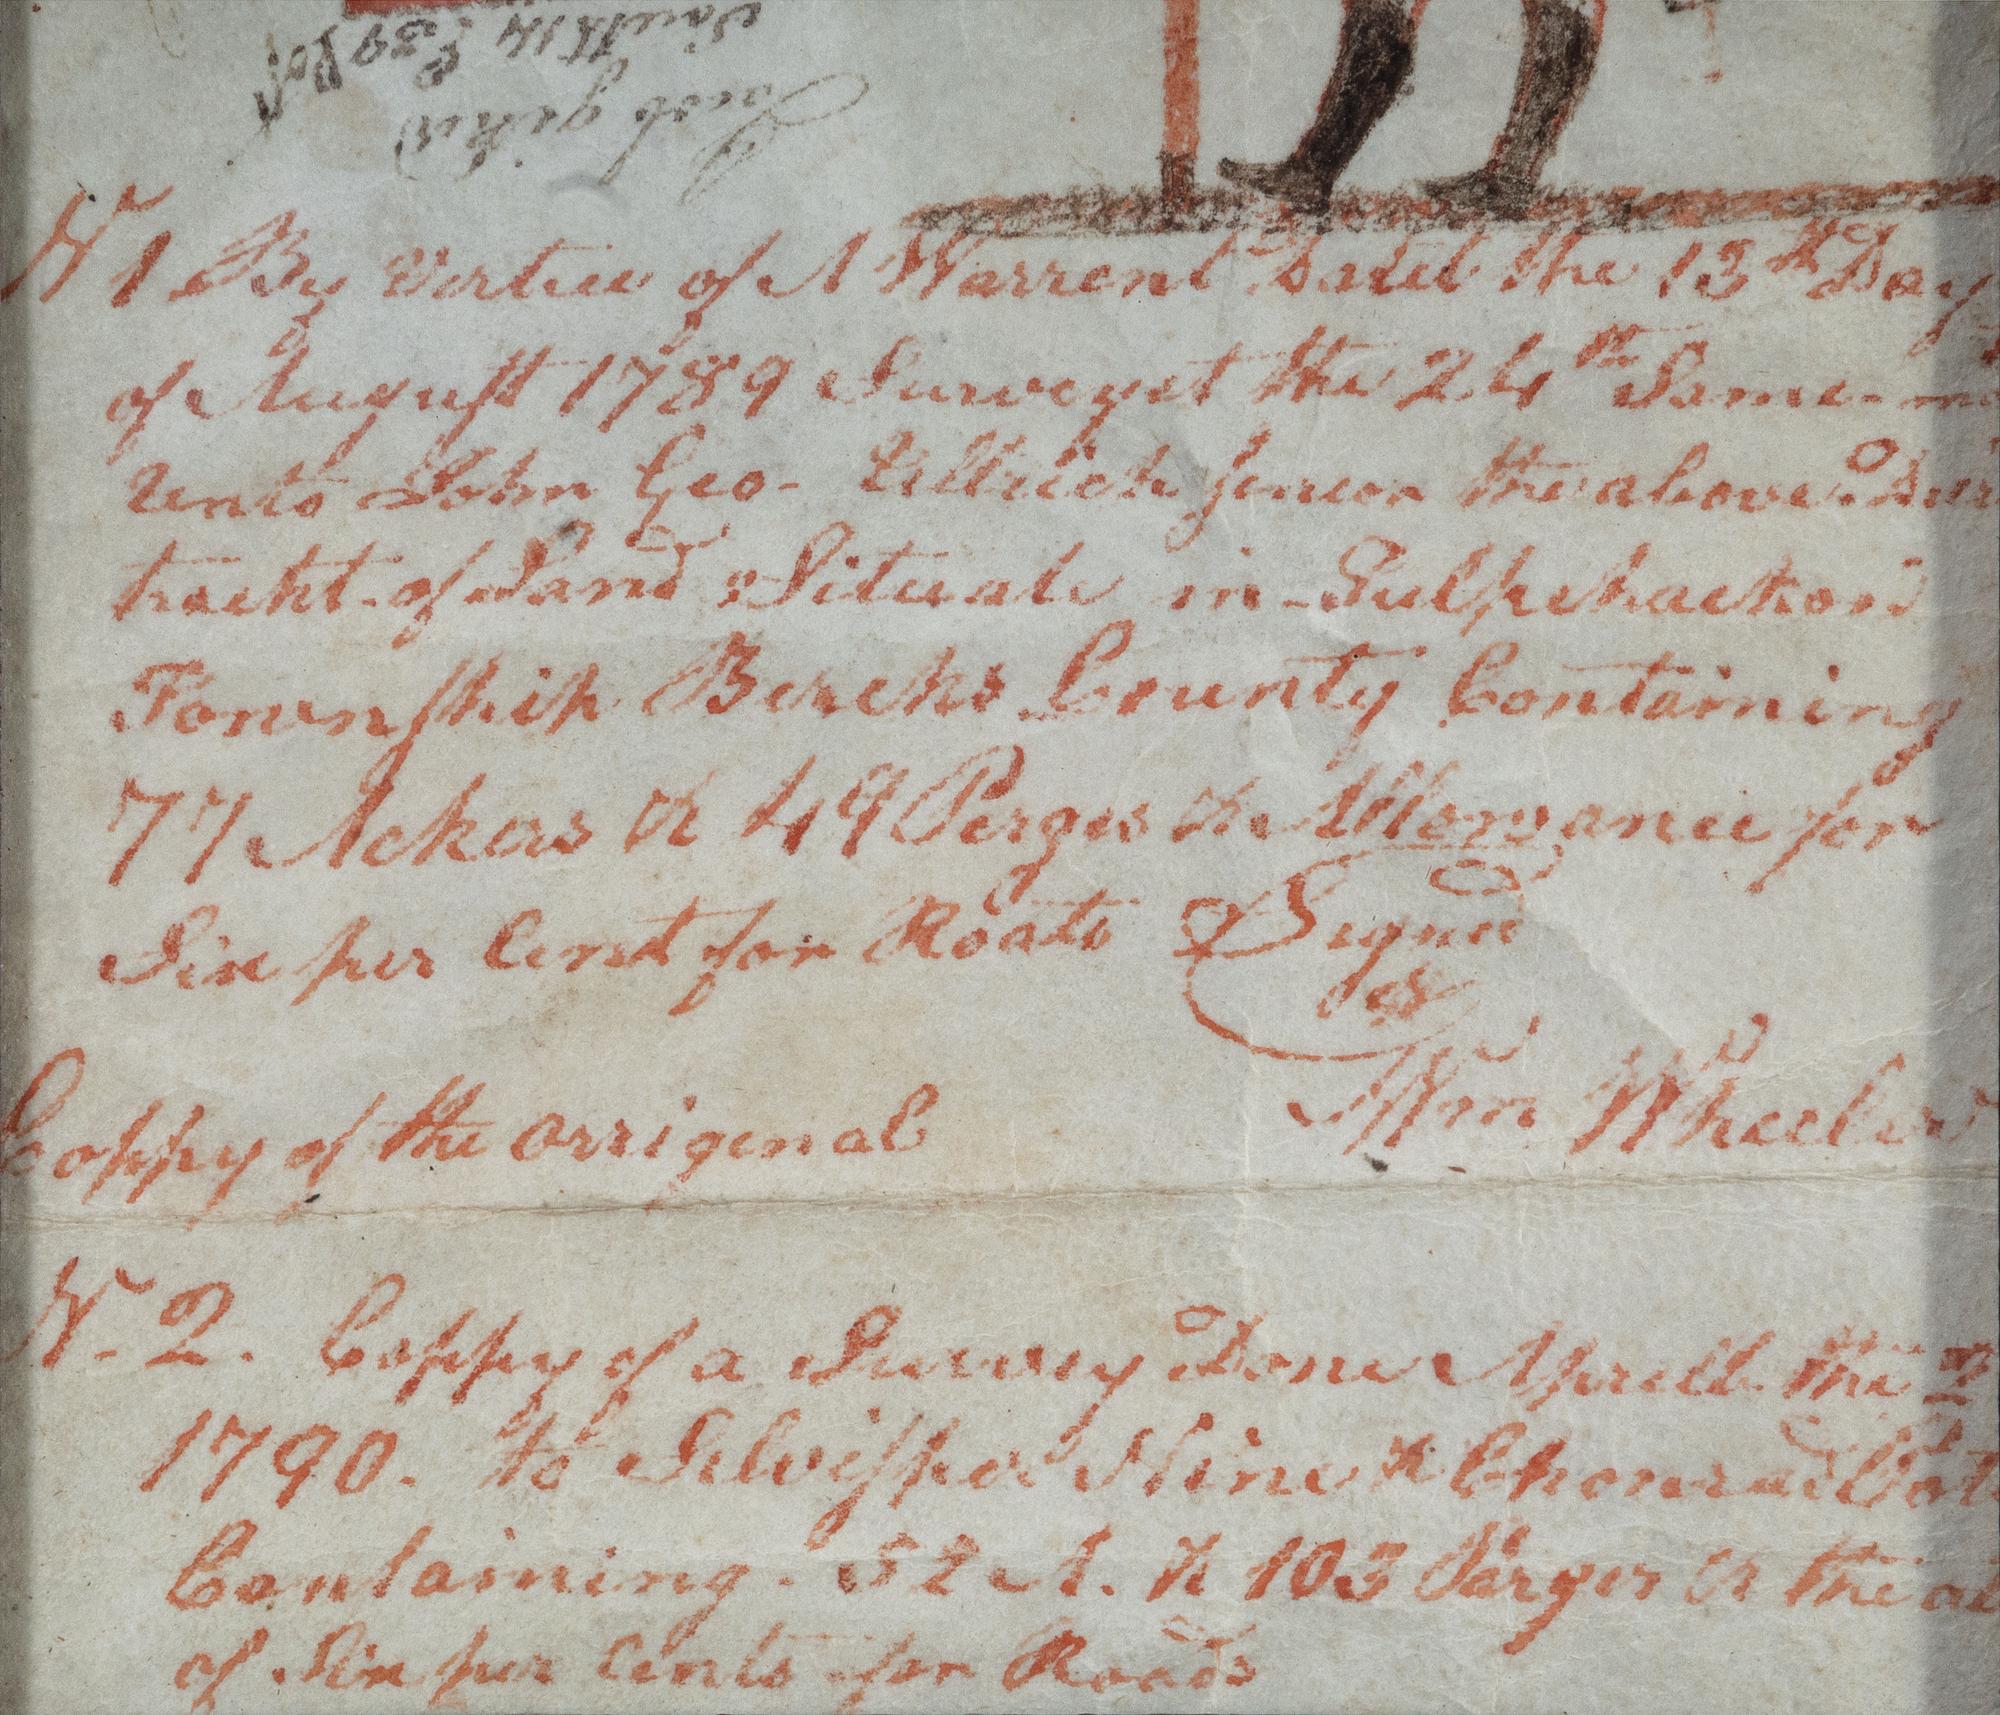 South 14 E 39 Ps
Jacob
N 1 By Vertue of A Warrent Datet the 13th Day
of August 1789 Surveyet the 24th Same
Unto John Geo- Ulltrich Senior the above
trackt of Land Situate in Tulpehackon
Township Bercks County Containing
77 Ackers & 49 Perges & Allowance for
Six per Cent for Roats Signed
Wm Wheeler
Coppy of the orriginal
N. 2. Coppy of a Survey Done Aprell the 2
1790. to Nine & Chonrad
Containing. 52 A. & 103 Perges & the
of Six per Cents for Roads